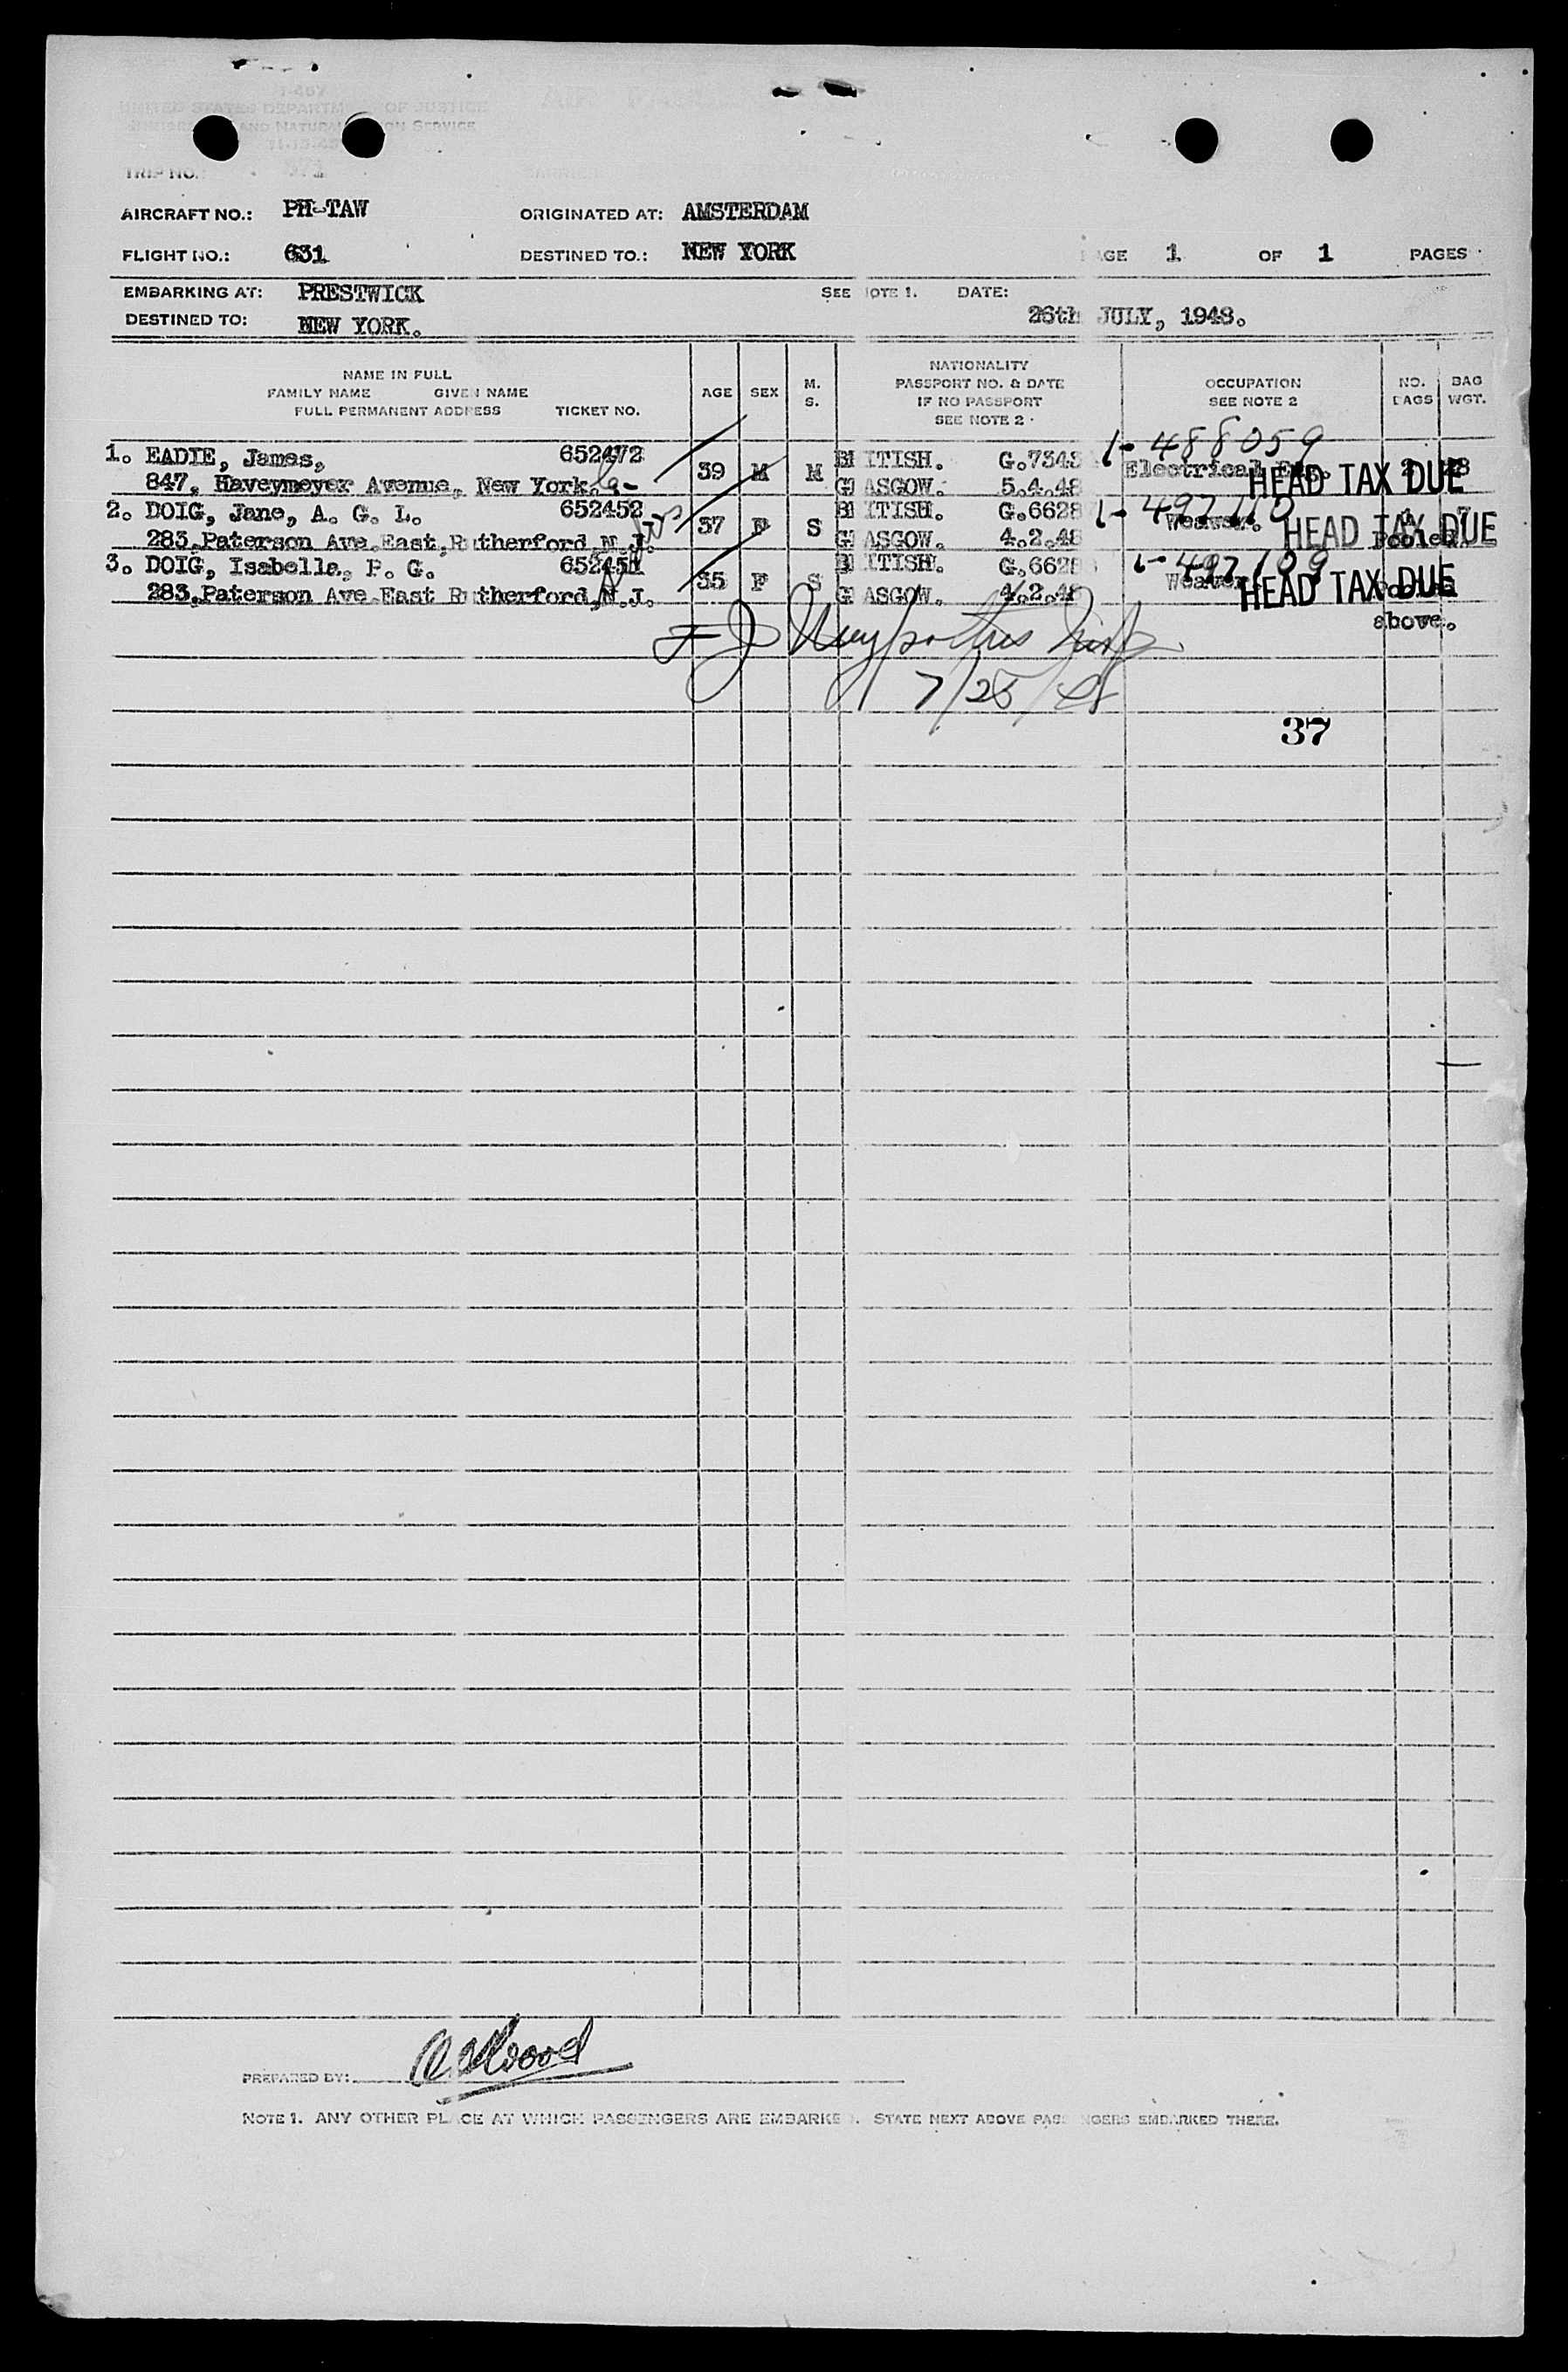 I-467
UNITED STATES DEPARTM OF JUSTICE
AND NATURAL ON SERVICE
TRIP NO.:
AIRCRAFT NO.: PH-TAW ORIGINATED AT: AMSTERDAM
FLIGHT NO.: 631 DESTINED TO.: NEW YORK AGE 1 OF 1 PAGES
EMBARKING AT: PRESTWICK SEE NOTE 1. DATE:
DESTINED TO: NEW YORK. 26th JULY, 1948.
NAME IN FULL
FAMILY NAME GIVEN NAME
FULL PERMANENT ADDRESS TICKET NO.
AGE SEX M. S.
NATIONALITY
PASSPORT NO. & DATE
IF NO PASSPORT
SEE NOTE 2
OCCUPATION
SEE NOTE 2
NO. BAGS
BAG WGT.
1-488059
1. EADIE, James, 652472 39 M M BRITISH. G.7343 Electrical HEAD TAX DUE
847, Haveymeyer Avenue, New York. GLASGOW. 5.4.48
2. DOIG, Jane, A. G. L. 652452 37 F S BRITISH. G.6628 1-497110 Weaver. HEAD TAX DUE
283, Paterson Ave. East, Rutherford N.J. GLASGOW. 4.2.48 Pooled
3. DOIG, Isabella, P. G. 652451 35 F S BRITISH. G.6628 1-497109 Weaver HEAD TAX DUE
283, Paterson Ave East Rutherford, N.J. GLASGOW. 4.2.48
above.
7/28/48
37
PREPARED BY:
NOTE 1. ANY OTHER PLACE AT WHICH PASSENGERS ARE EMBARKED. STATE NEXT ABOVE PASSENGERS EMBARKED THERE.